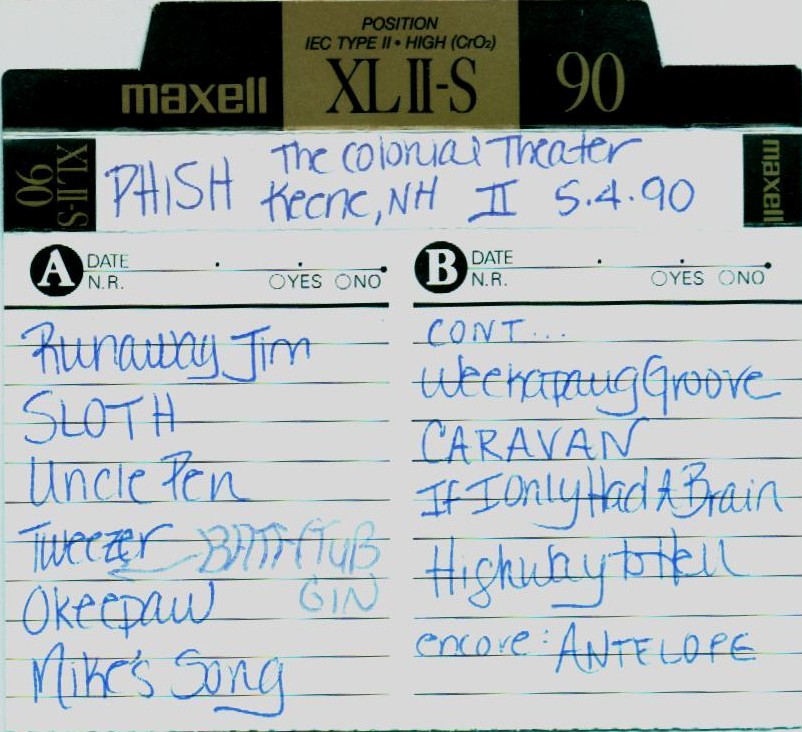 POSITION
IEC TYPE II • HIGH (CrO₂)
maxell XLII-S 90
XLII-S 90
PHISH The Colonial Theater
Keene, NH II 5.4.90
maxell
A DATE
N.R. YES NO
Runaway Jim
SLOTH
Uncle Pen
Tweezer BATHTUB
GIN
Okeepaw
Mike's Song
B DATE
N.R. YES NO
CONT...
Weekapaug Groove
CARAVAN
If I Only Had A Brain
Highway to Hell
encore: ANTELOPE